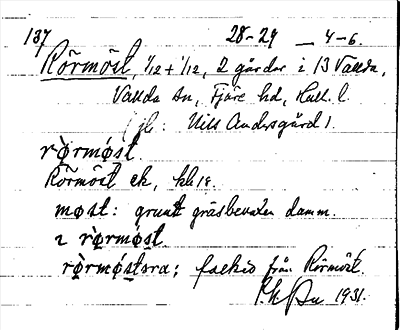 137 28-29 — 4-6.
Rörmöst, 1/12 + 1/12, 2 gårdar i 13 Vallda,
Vallda sn, Fjäre hd, Hall. l.
(jfr: Nils Andersgård).
rö̀rmøst
Rörmöst ek,
møst: grund gräsbevuxen damm.
i rö̀rmø̀st
rö̀rmø̀stra; folket från Rörmöst.
1931.